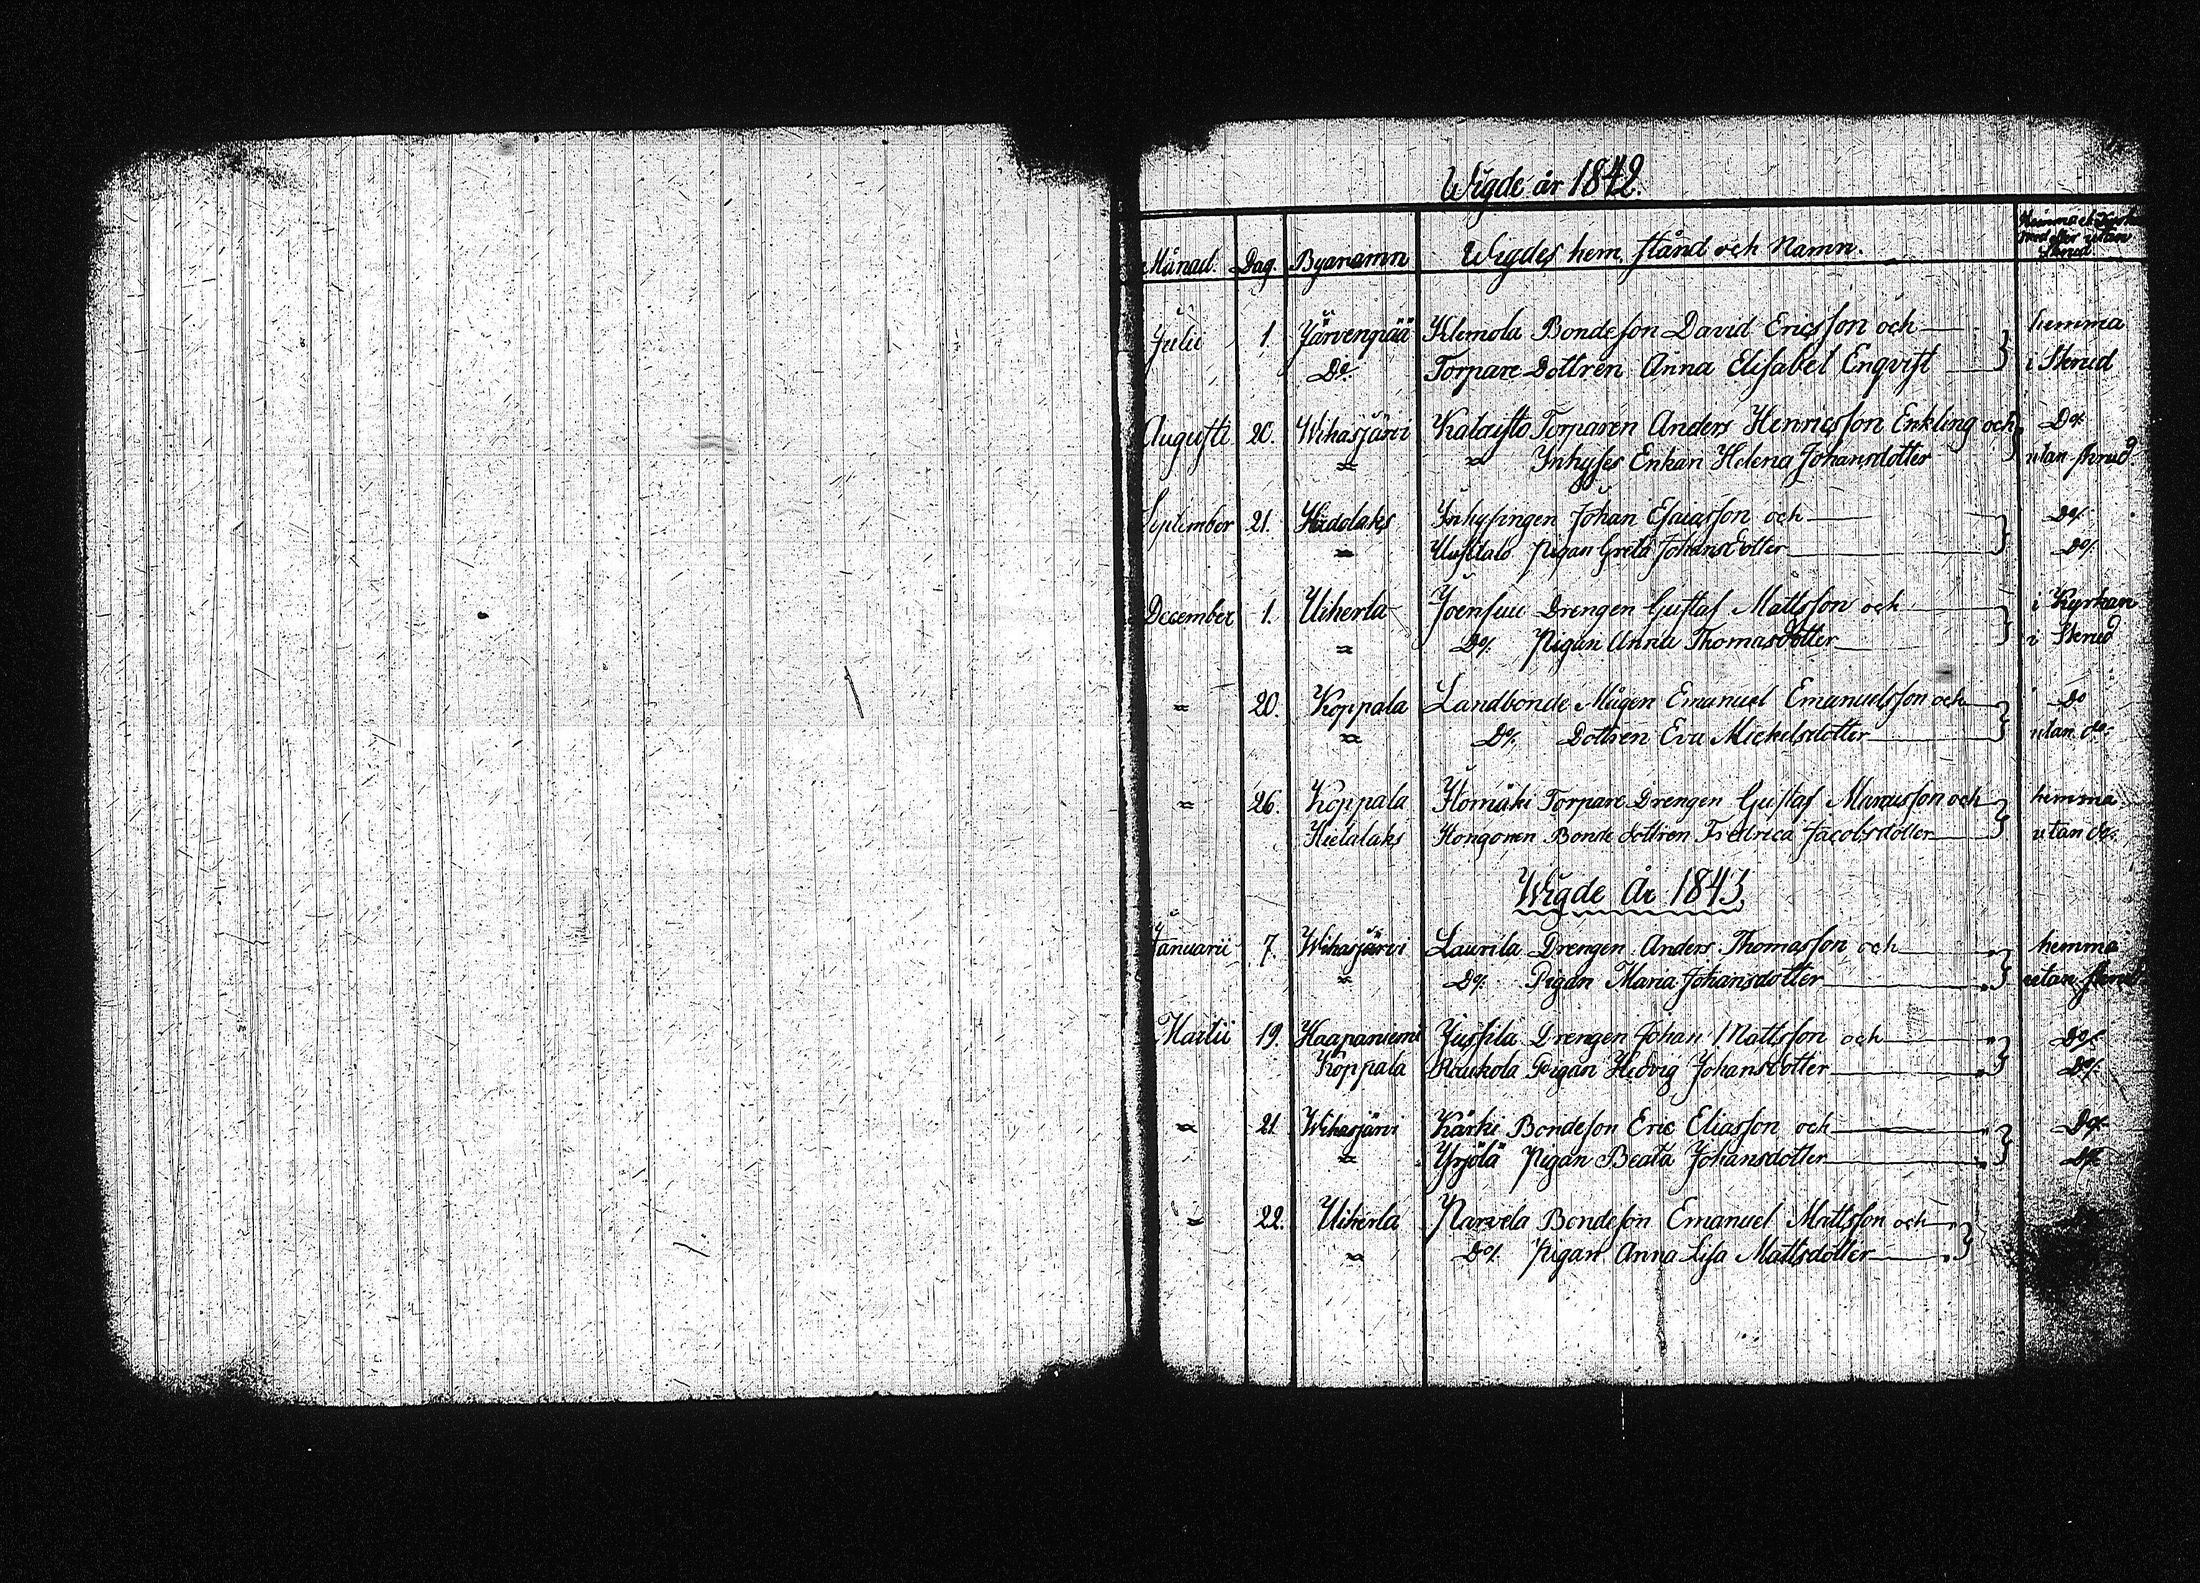 Wigde år 1842.
Månad. Dag. Byanamn Wigdes hem, stånd och Namn. Hemma el. Kyrk. med eller utan skrud.
Julii 1. Järvenpää Klemola Bondeson David Ericsson och hemma
Do Torpare Dottren Anna Elisabet Enqvist i Skrud
Augusti 20. Wihasjärvi Kalaisto Torparen Anders Henricsson Enkling och Do
" " Inhyses Enkan Helena Johansdotter utan skrud
September 21. Hiidolaks Inhysingen Johan Esaiasson och Do
" Uusitalo Pigan Greta Johansdotter Do
December 1. Uiherla Joensuu Drengen Gustaf Mattsson och i Kyrkan
" Do Pigan Anna Thomasdotter i Skrud
" 20. Koppala Landbonde Mågen Emanuel Emanuelsson och Do
" Do Dottren Eva Michelsdotter utan do
" 26. Koppala Homäki Torpare Drengen Gustaf Marcusson och hemma
Hiedalaks Hongonen Bonde dottren Fredrica Jacobsdotter utan do
Wigde År 1843.
Januarii 7. Wihasjärvi Laurila Drengen Anders Thomasson och hemma
" Do Pigan Maria Johansdotter utan skrud
Martii 19. Haapaniemi Jussila Drengen Johan Mattsson och Do
Koppala Roukola Pigan Hedvig Johansdotter Do
" 21 Wihasjärvi Kärki Bondeson Eric Eliasson och Do
" Yrjölä Pigan Beata Johansdotter Do
" 22. Uiherla Narvela Bondeson Emanuel Mattsson och
" Do Pigan Anna Lisa Mattsdotter